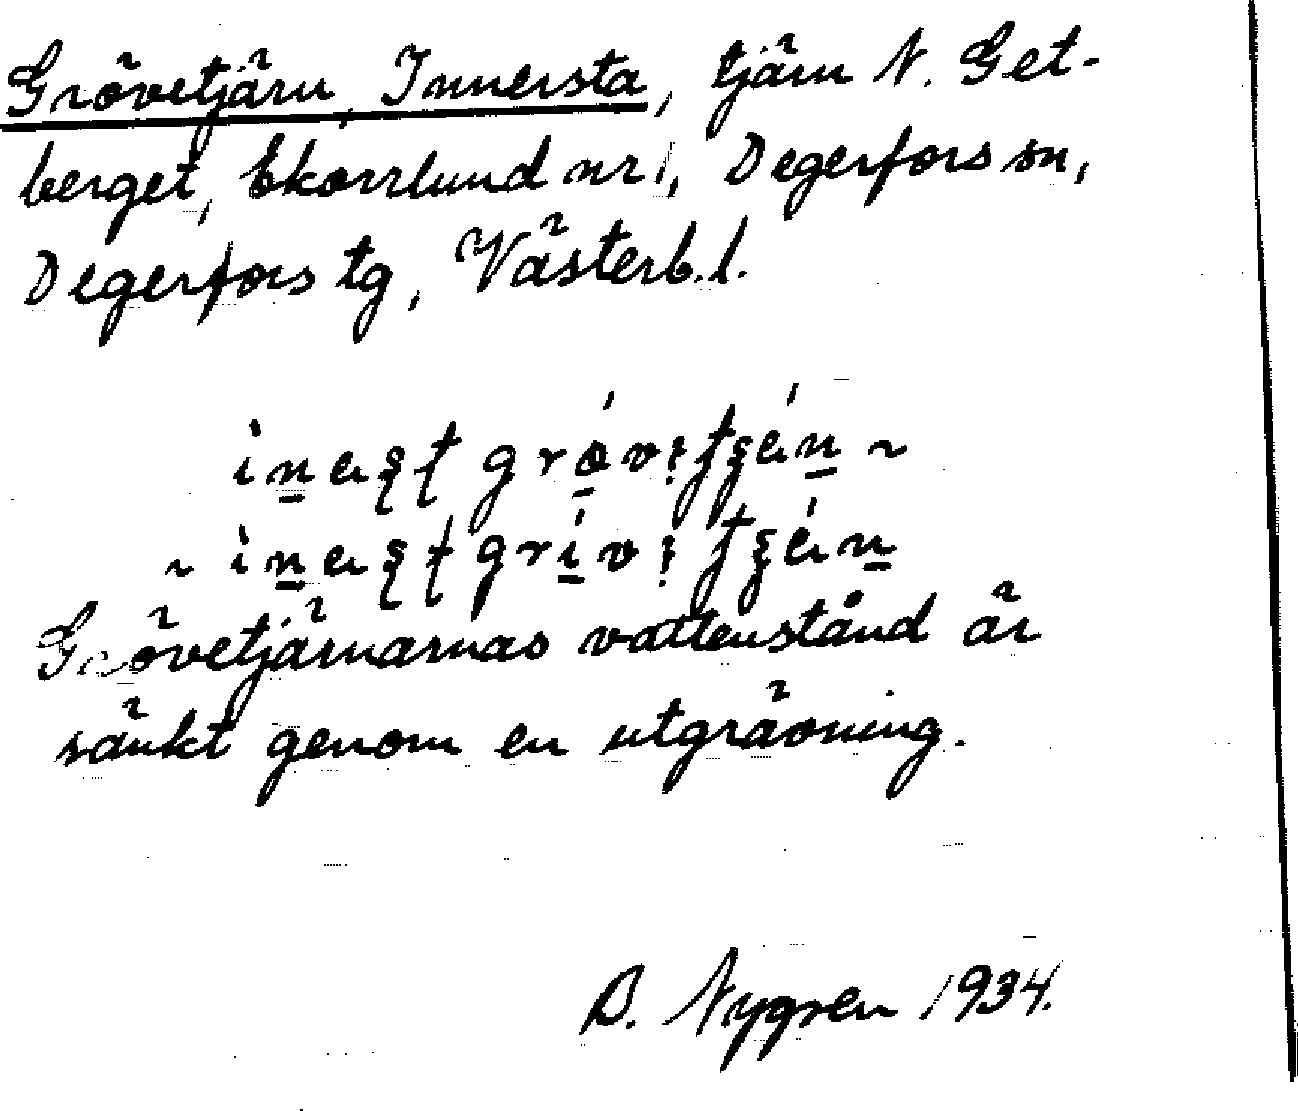 Grövetjärn, Innersta, tjärn N. Get-
berget, Ekorrlund nr 1, Degerfors sn,
Degerfors tg, Västerb. l.
Grövetjärnarnas vattenstånd är
sänkt genom en utgrävning.
Nygren 1934.